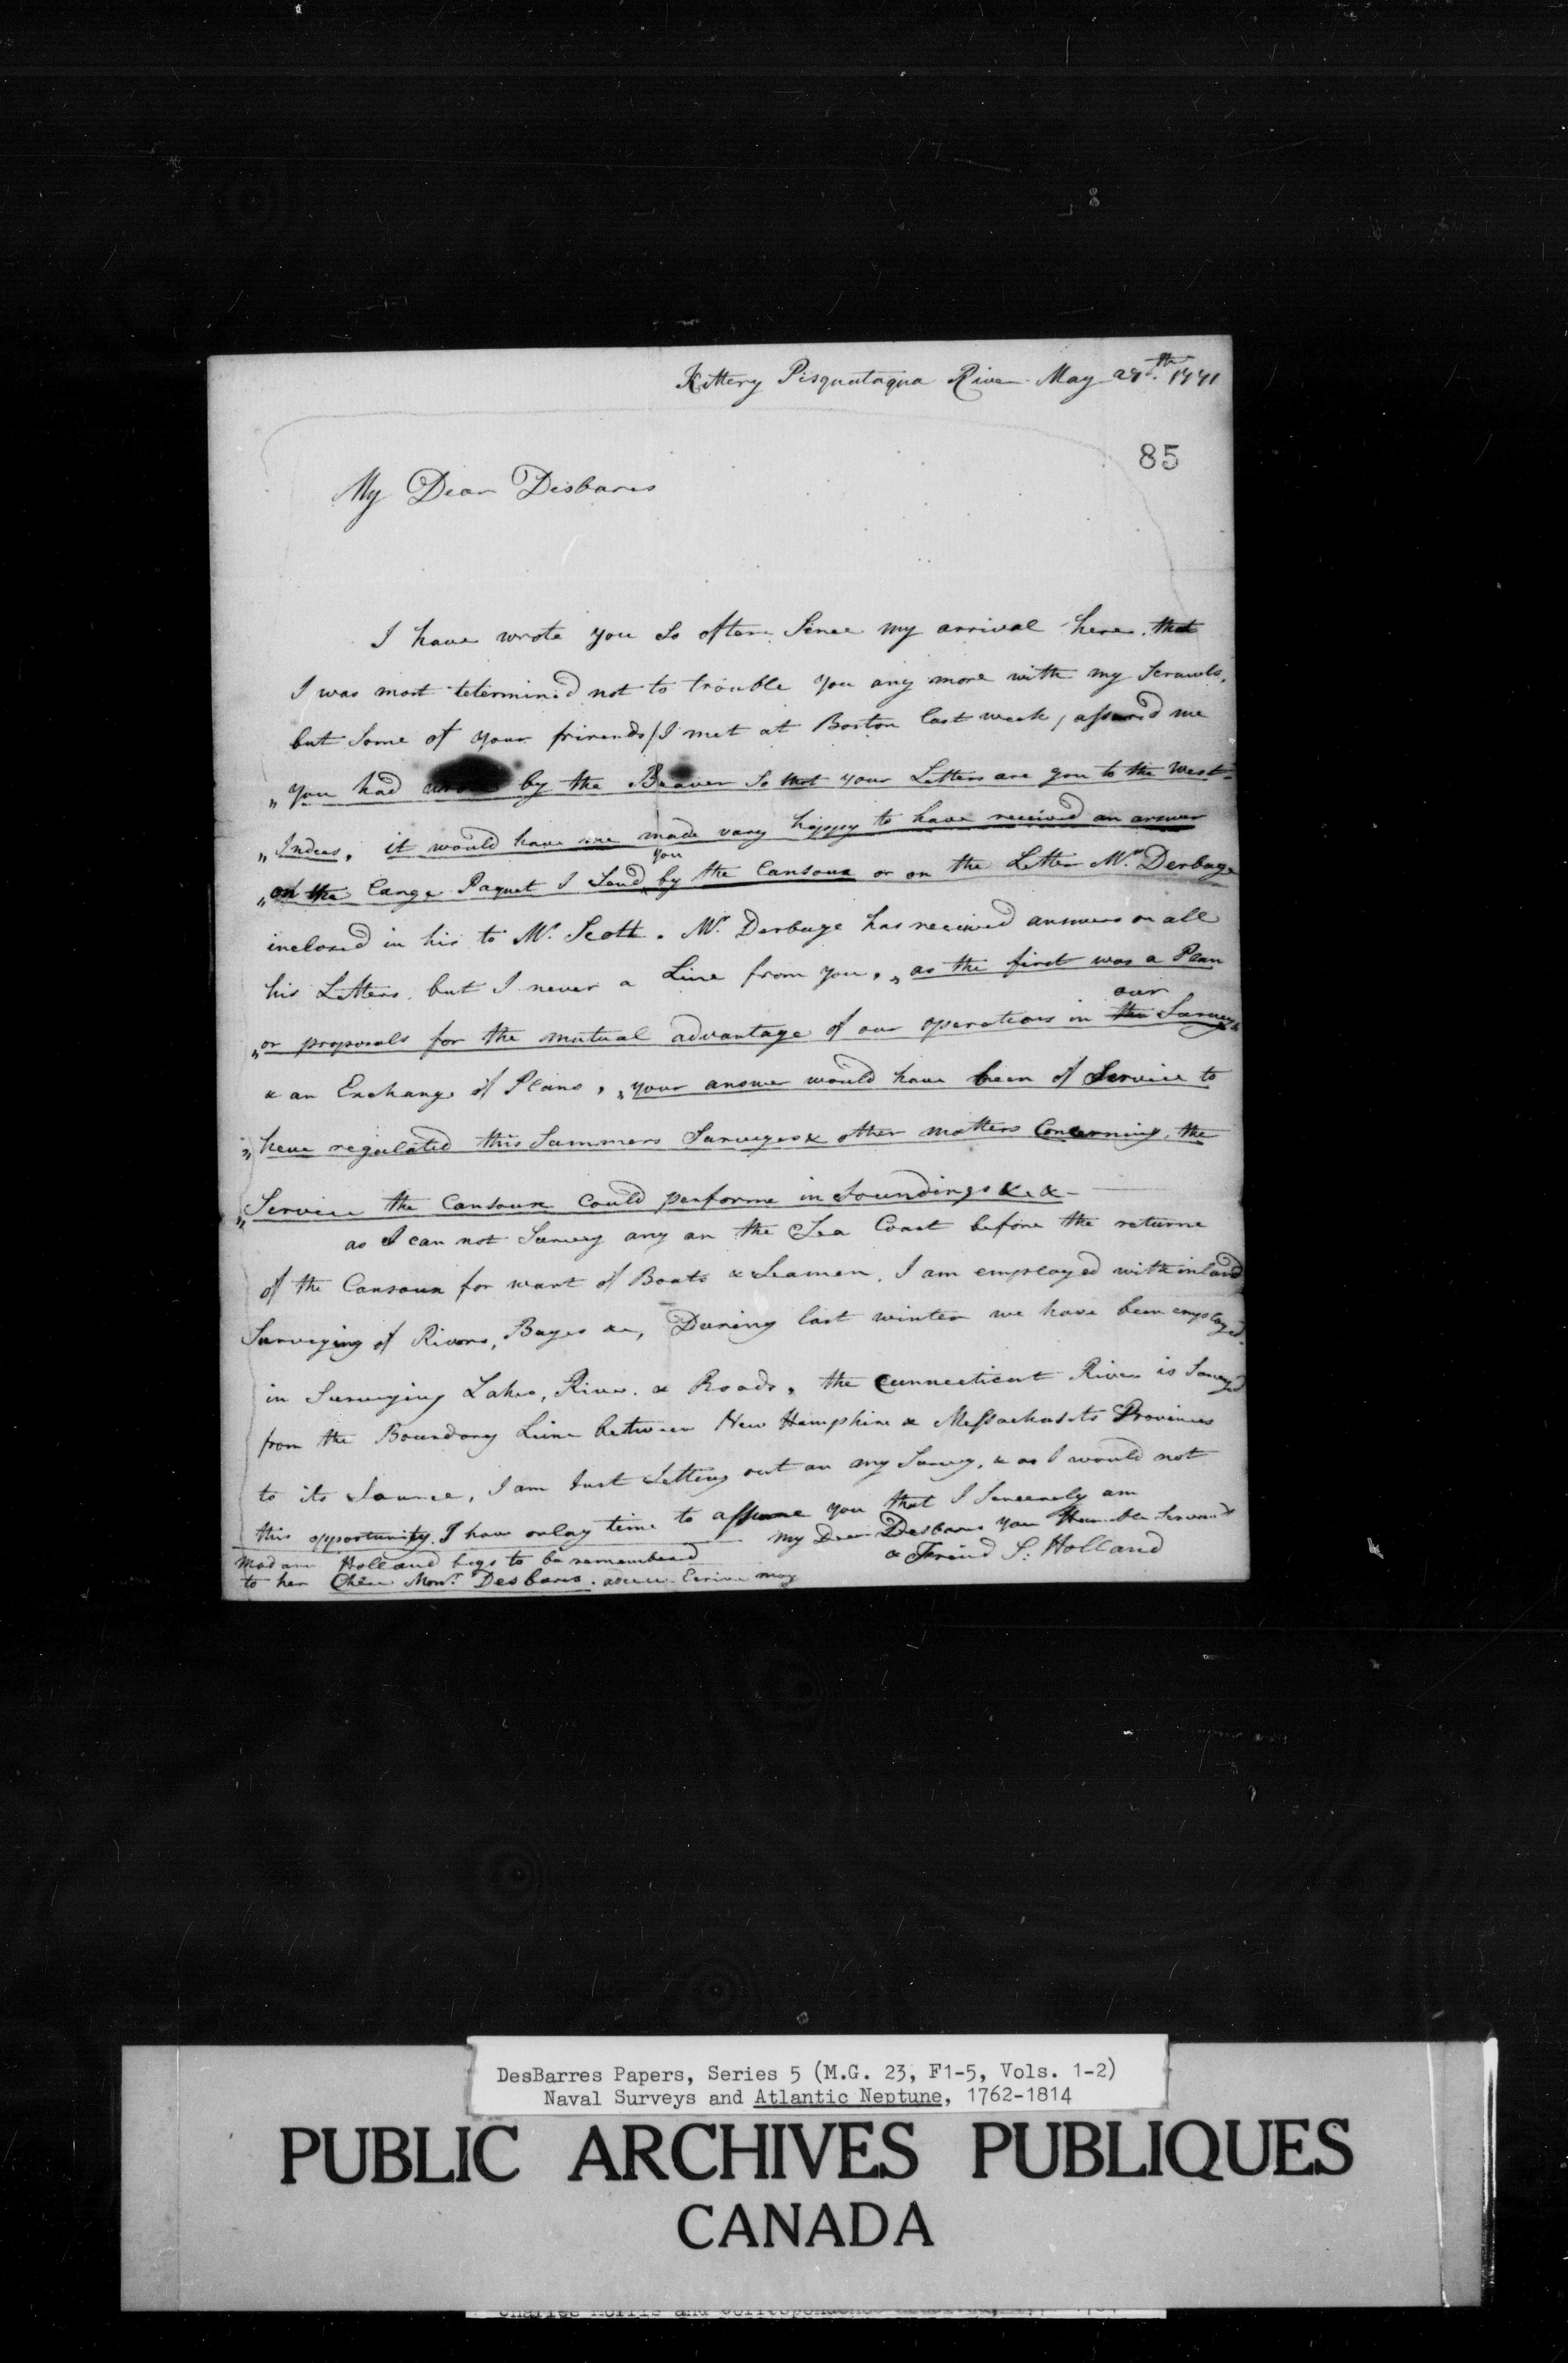 Kittery Pisquataqua River May 27th. 1771
85
My Dear Desbares
I have wrote you So often Since my arrival here, that
I was most determined not to trouble you any more with my Scrawls,
but Some of your frirends / I met at Boston last week / assured me
„ you had wrote by the Beaver So that your Letters are gon to the West
„ Indies, it would have me made vary happy to have received an answer
„ on the Large Paquet I Send you by the Cansoux or on the Letter Mr. Derbage
inclosed in his to Mr. Scott. Mr. Derbage has received answers on all
his Letters, but I never a Line from you, „ as the first was a Plan
„ or proposals for the mutual advantage of our operations in the our Surveys
& an Exchange of Plans, „ your answer would have been of Service to
„ have regulated this Summers Surveyes & other matters Concerning, the
„ Service the Cansoux Could performe in Soundings &c. &c
as I can not Survey any on the Sea Coast before the returne
of the Cansoux for want of Boats & Seamen, I am employed with inland
Surveying of Rivers, Bayes &c, During last winter we have been employed
in Surveying Lakes, River. & Roads, the Cunnecticut River is Surveyd
from the Boundary Line between New Hampshire & Messachusets Provinces
to its Source, I am Just Setting out on my Survey, & as I would not
this opportunity. I have onlay time to assure you that I Sincerely am
my Dear Desbares your Humble Servand
& Frind S: Holland
Madam Holland begs to be remembered
to her Chèr Monsr. Desbares. adieu Ecrive moy
DesBarres Papers, Series 5 (M.G. 23, F1-5, Vols. 1-2)
Naval Surveys and Atlantic Neptune, 1762-1814
PUBLIC ARCHIVES PUBLIQUES
CANADA